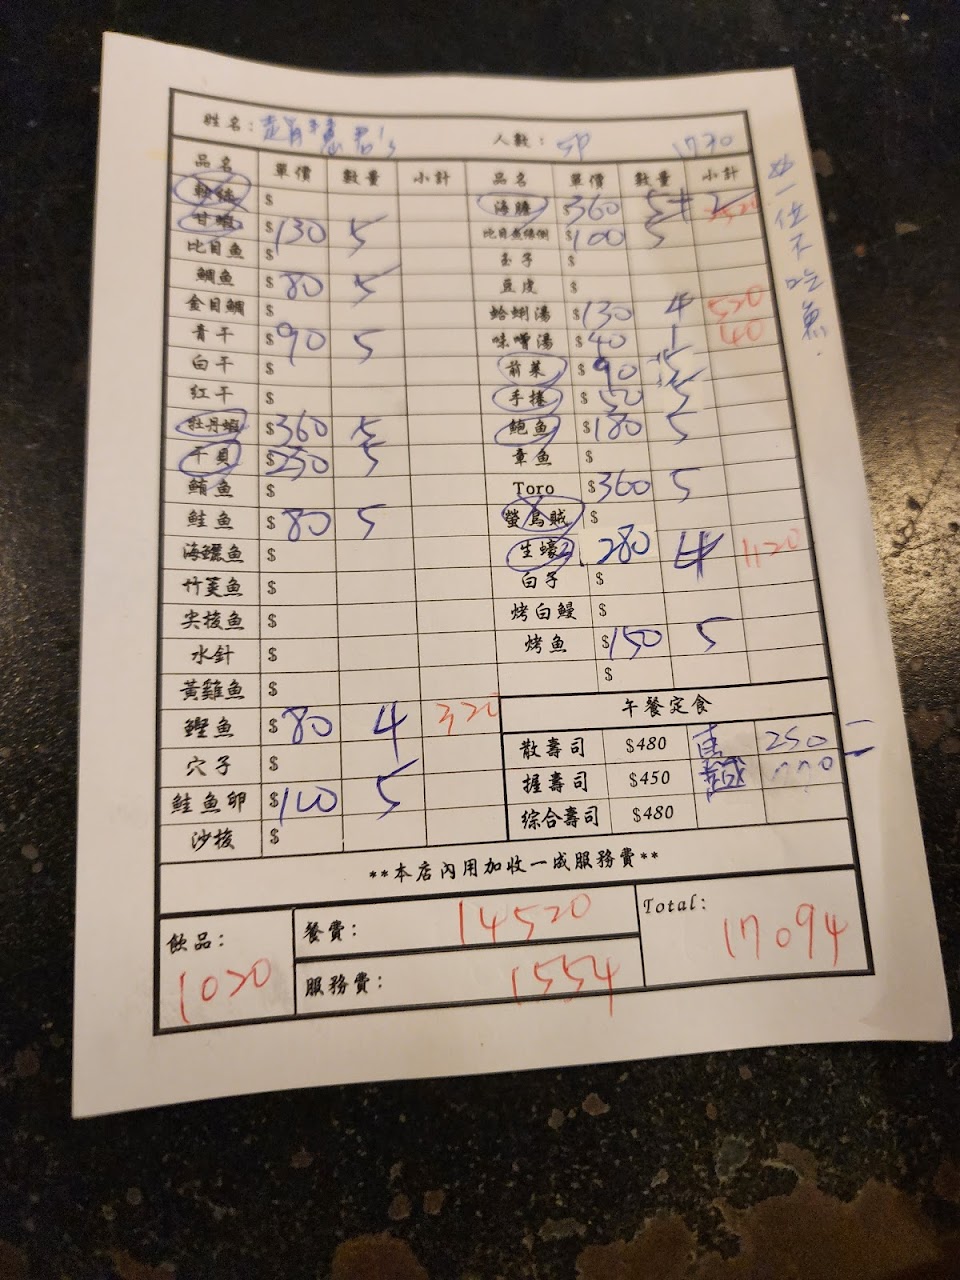 姓名: 人數: 5P 1730
品名 單價 數量 小計 品名 單價 數量 小計
$ 海膽 $360 5+2 2520
甘蝦 $130 5 比目魚緣側 $100 5
比目魚 $ 玉子 $
鯛魚 $80 5 豆皮 $
金目鯛 $ 蛤蜊湯 $130 4 520
青干 $90 5 味噌湯 $40 1 40
白干 $ 前菜 $90 5
紅干 $ 手捲 $ 5
牡丹蝦 $360 5 鮑魚 $180 5
干貝 $250 5 章魚 $
鮪魚 $ Toro $360 5
鮭魚 $80 5 螢烏賊 $
海鱺魚 $ 生蠔 280 4 1120
竹莢魚 $ 白子 $
尖梭魚 $ 烤白鰻 $
水針 $ 烤魚 $150 5
黃雞魚 $ $
鰹魚 $80 4 320
穴子 $
鮭魚卵 $100 5
沙梭 $
午餐定食
散壽司 $480 250
握壽司 $450
綜合壽司 $480
**本店內用加收一成服務費**
飲品: 1020
餐費: 14520
服務費: 1554
Total: 17094
一位不吃魚.